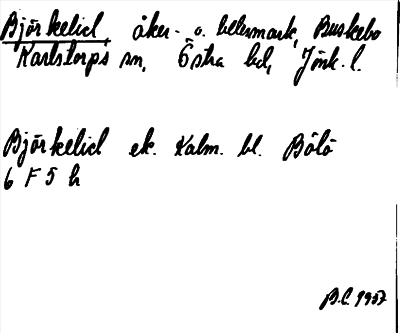 Björkelid åker- o. betesmark, Buskebo
Karlstorps sn, Östra hd, Jönk. l.
Björkelid ek. Kalm. bl. Bölö
6 F 5 h
B.L. 1957